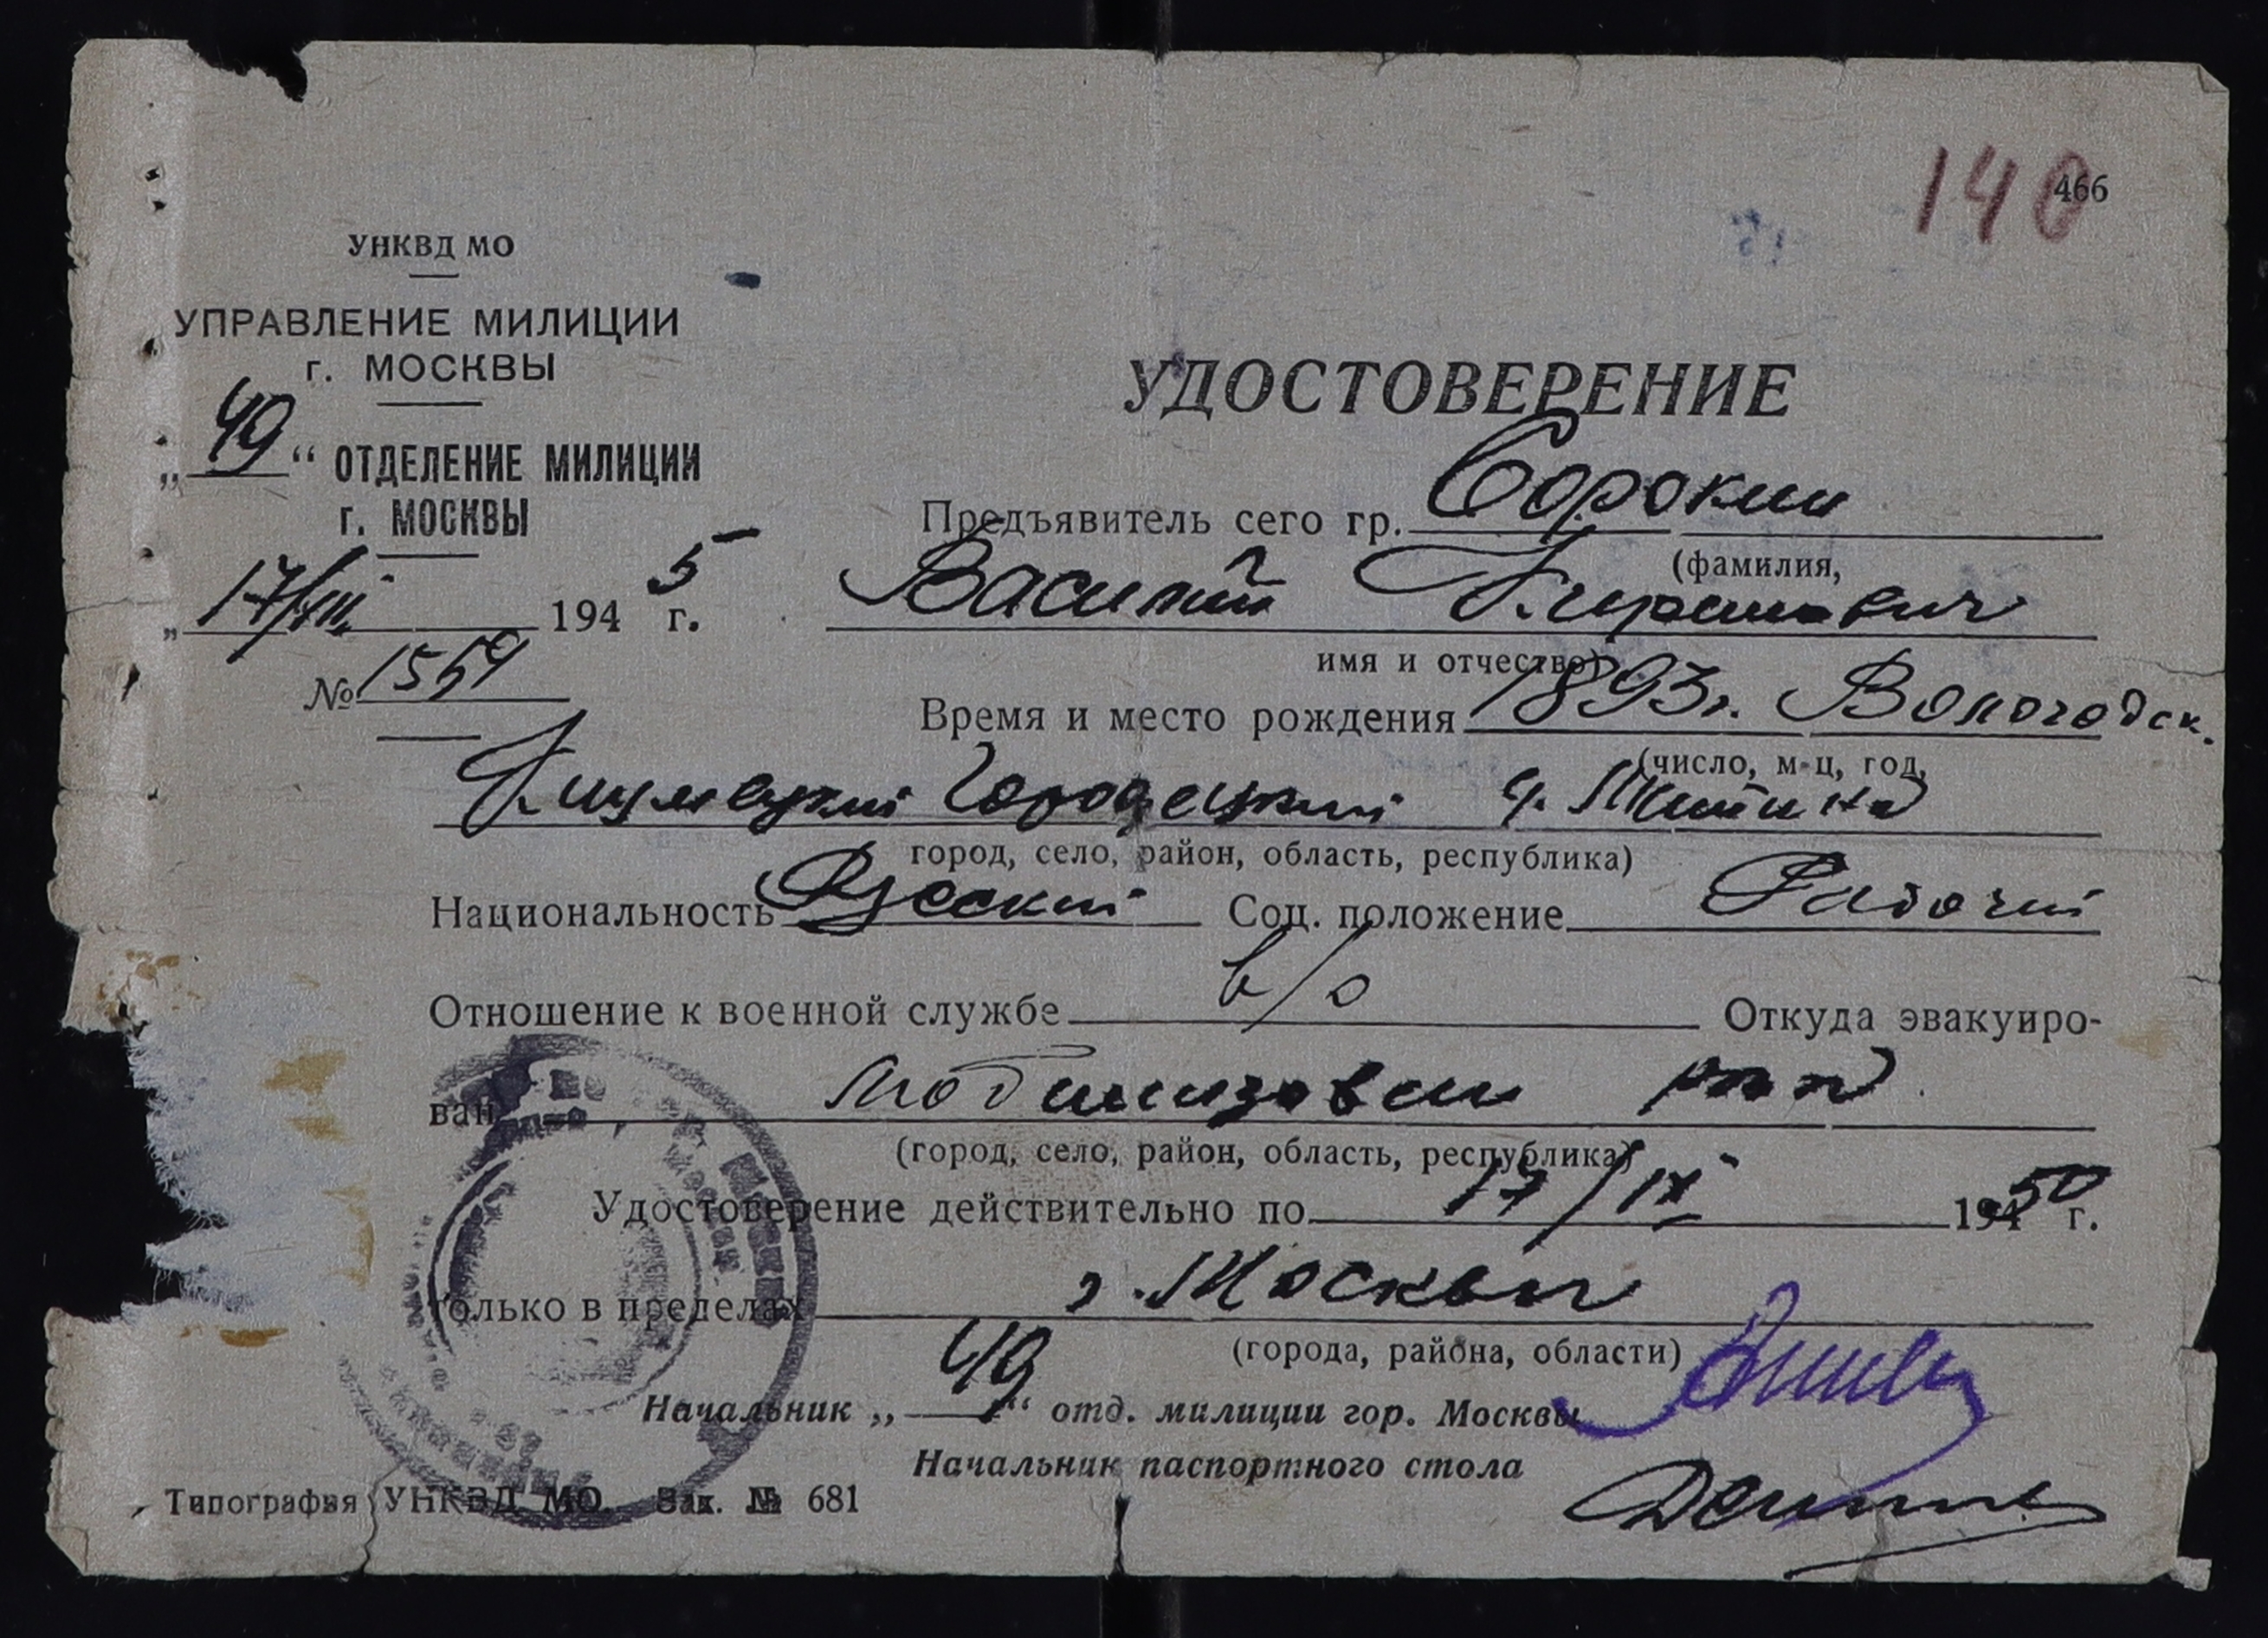 140
466
УНКВД МО
УПРАВЛЕНИЕ МИЛИЦИИ
г. МОСКВЫ
„49“ ОТДЕЛЕНИЕ МИЛИЦИИ
г. МОСКВЫ
„17/VIII 1945 г.
№ 1559
УДОСТОВЕРЕНИЕ
Предъявитель сего гр. Сорокин
(фамилия,
Василий
имя и отчество)
Время и место рождения 1893 г. Вологодск.
(число, м-ц, год,
Городецкий д.
город, село, район, область, республика)
Национальность Русский Соц. положение Рабочий
Отношение к военной службе в/о Откуда эвакуиро-
ван мобилизован
(город, село, район, область, республика)
Удостоверение действительно по 17/IX 19450 г.
только в пределах г. Москвы
(города, района, области)
Начальник „49“ отд. милиции гор. Москвы
Начальник паспортного стола
Типография УНКВД МО. Зак. № 681